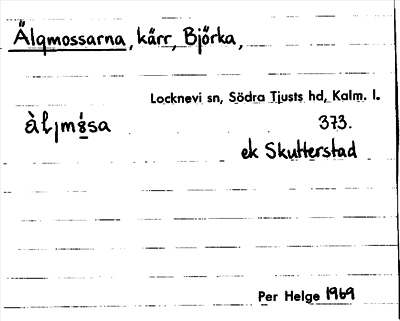 Älgmossarna, kärr, Björka,
Locknevi sn, Södra Tjusts hd, Kalm. l.
373.
ek Skutterstad
Per Helge 1969